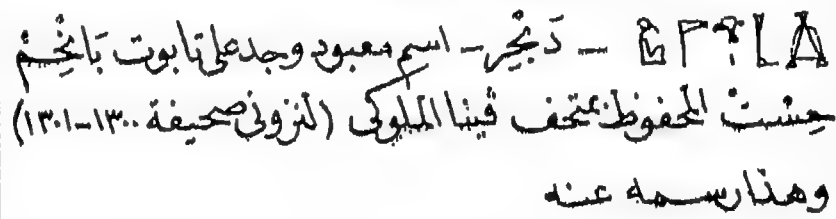 — دَنْجِر - اسم معبود وجد على تابوت بَانِخْمْ
حِسْتْ المحفوظ بمتحف ڤينا الملوكى (لنزونى صحيفة ١٣٠٠-١٣٠١)
وهذا رسمه عنه